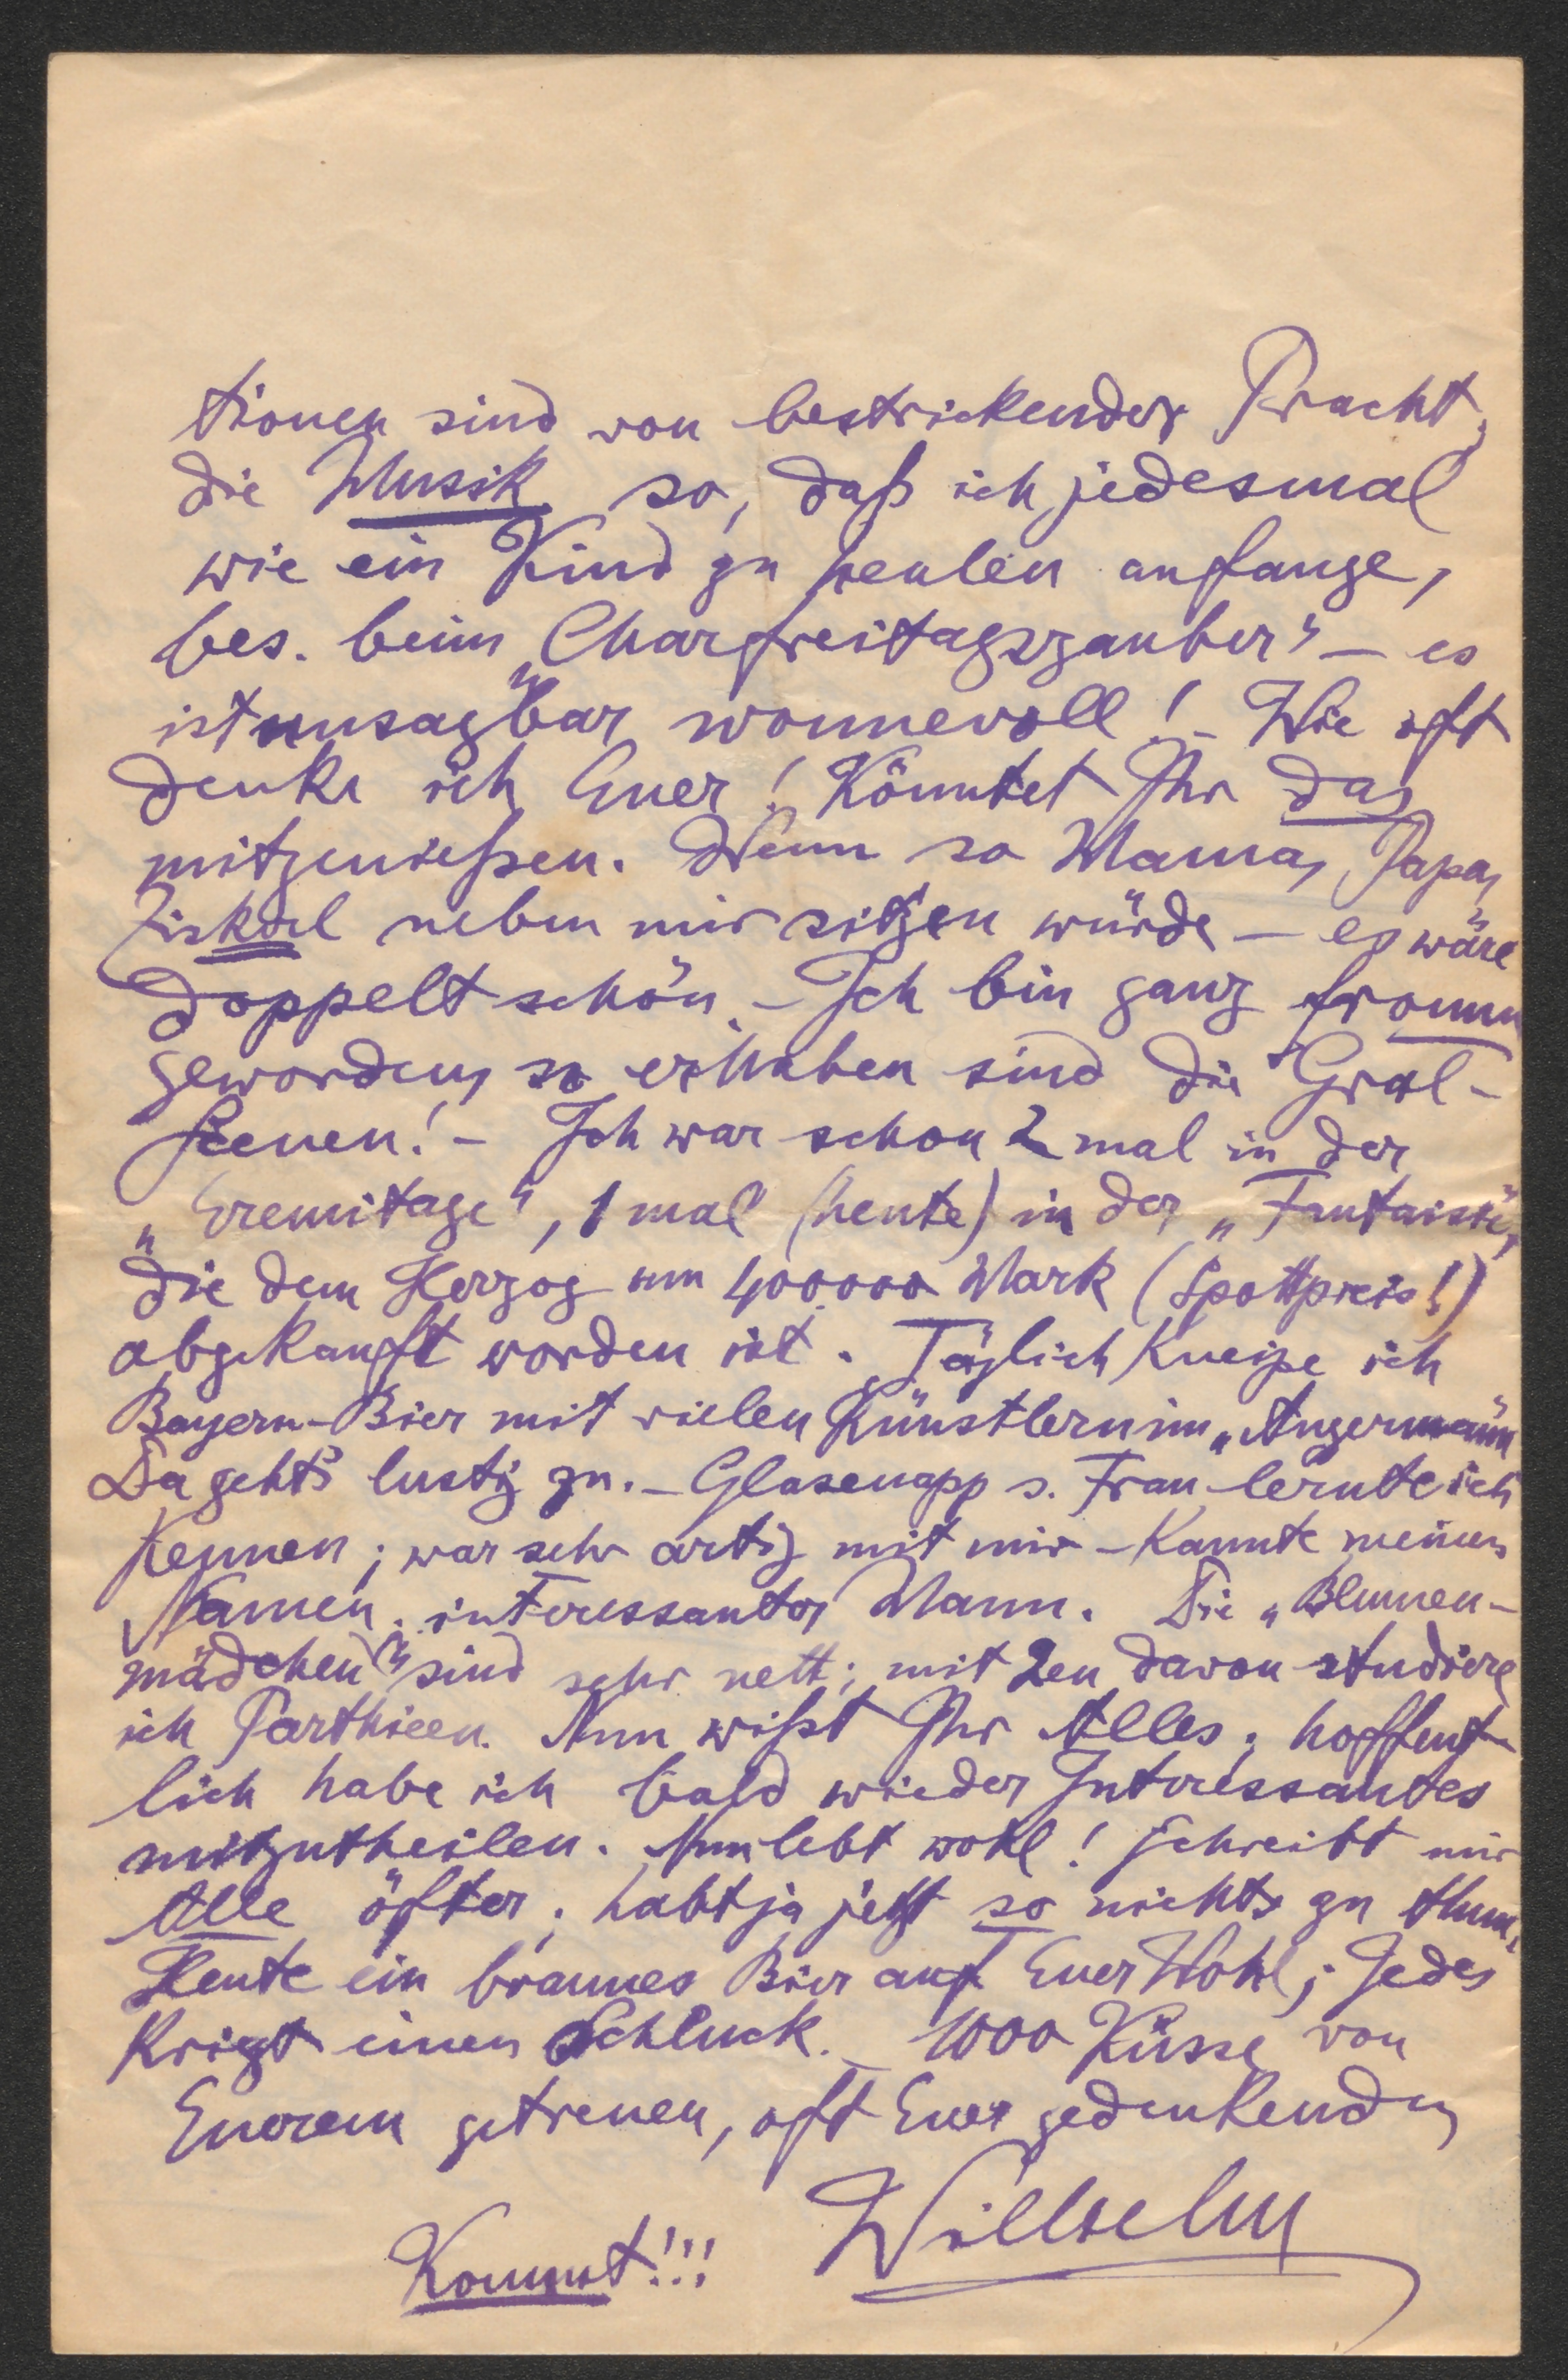 tionen sind von bestrickender Pracht,
die Musik so, daß ich jedesmal
wie ein Kind zu heulen anfange,
bes. beim „Charfreitagszauber“ – es
ist unsagbar wonnevoll! – Wie oft
denke ich Euer! Könntet Ihr das
mitgenießen. Wenn so Mama, Papa,
neben mir sitzen würde – es wäre
doppelt schön. – Ich bin ganz fromm
geworden, so erhaben sind die Gral-
scenen! – Ich war schon 2 mal in der
„Eremitage“, 1 mal (heute) in der „Fantaisie“,
die dem Herzog um 400000 Mark (Spottpreis!)
abgekauft worden ist. Täglich kneipe ich
Bayern-Bier mit vielen Künstlern im „Angermann“
Da geht's lustig zu. – Glasenapp s. Frau lernte ich
kennen; war sehr artig mit mir – kannte meinen
Namen. interessanter Mann. Die „Blumen-
mädchen“ sind sehr nett; mit 2en davon studiere
ich Parthieen. Nun wißt Ihr Alles; hoffent-
lich habe ich bald wieder Interessantes
mitzutheilen. Nun lebt wohl! Schreibt mir
Alle öfter; habt ja jetzt so nichts zu thun.
Heute ein braunes Bier auf Euer Wohl; Jedes
krigt einen Schluck. – 1000 Küsse von
Euerem getreuen, oft Euer gedenkenden
Wilhelm
Kommt!!!